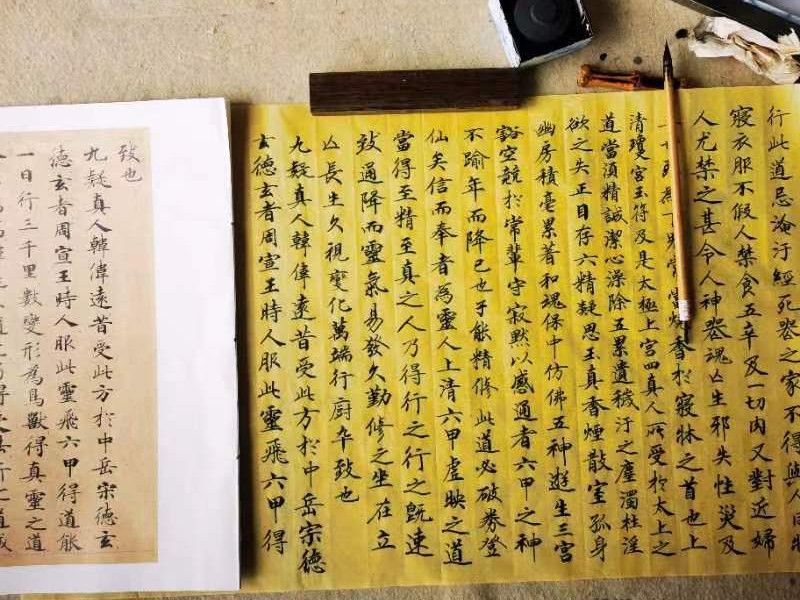 行此道忌淹汙經死喪之家不得與人同牀
寢衣服不假人禁食五辛及一切肉又對近婦
人尤禁之甚令人神喪魂亡生邪失性災及
世死為下鬼常當燒香於寢牀之首也上
清瓊宮玉符乃是太極上宮四真人所受於太上之
道當須精誠潔心澡除五累遺穢汙之塵濁杜淫
欲之失正目存六精凝思玉真香煙散室孤身
幽房積毫累著和魂保中仿佛五神遊生三宮
豁空競於常輩守寂默以感通者六甲之神
不踰年而降已也子能精修此道必破券登
仙矣信而奉者為靈人上清六甲虛映之道
當得至精至真之人乃得行之行之既速
致通降而靈氣易發久勤修之坐在立
亡長生久視變化萬端行廚卒致也
九疑真人韓偉遠昔受此方於中岳宗德
玄德玄者周宣王時人服此靈飛六甲得
致也
九疑真人韓偉遠昔受此方於中岳宗德玄
德玄者周宣王時人服此靈飛六甲得道能
一日行三千里數變形為鳥獸得真靈之道